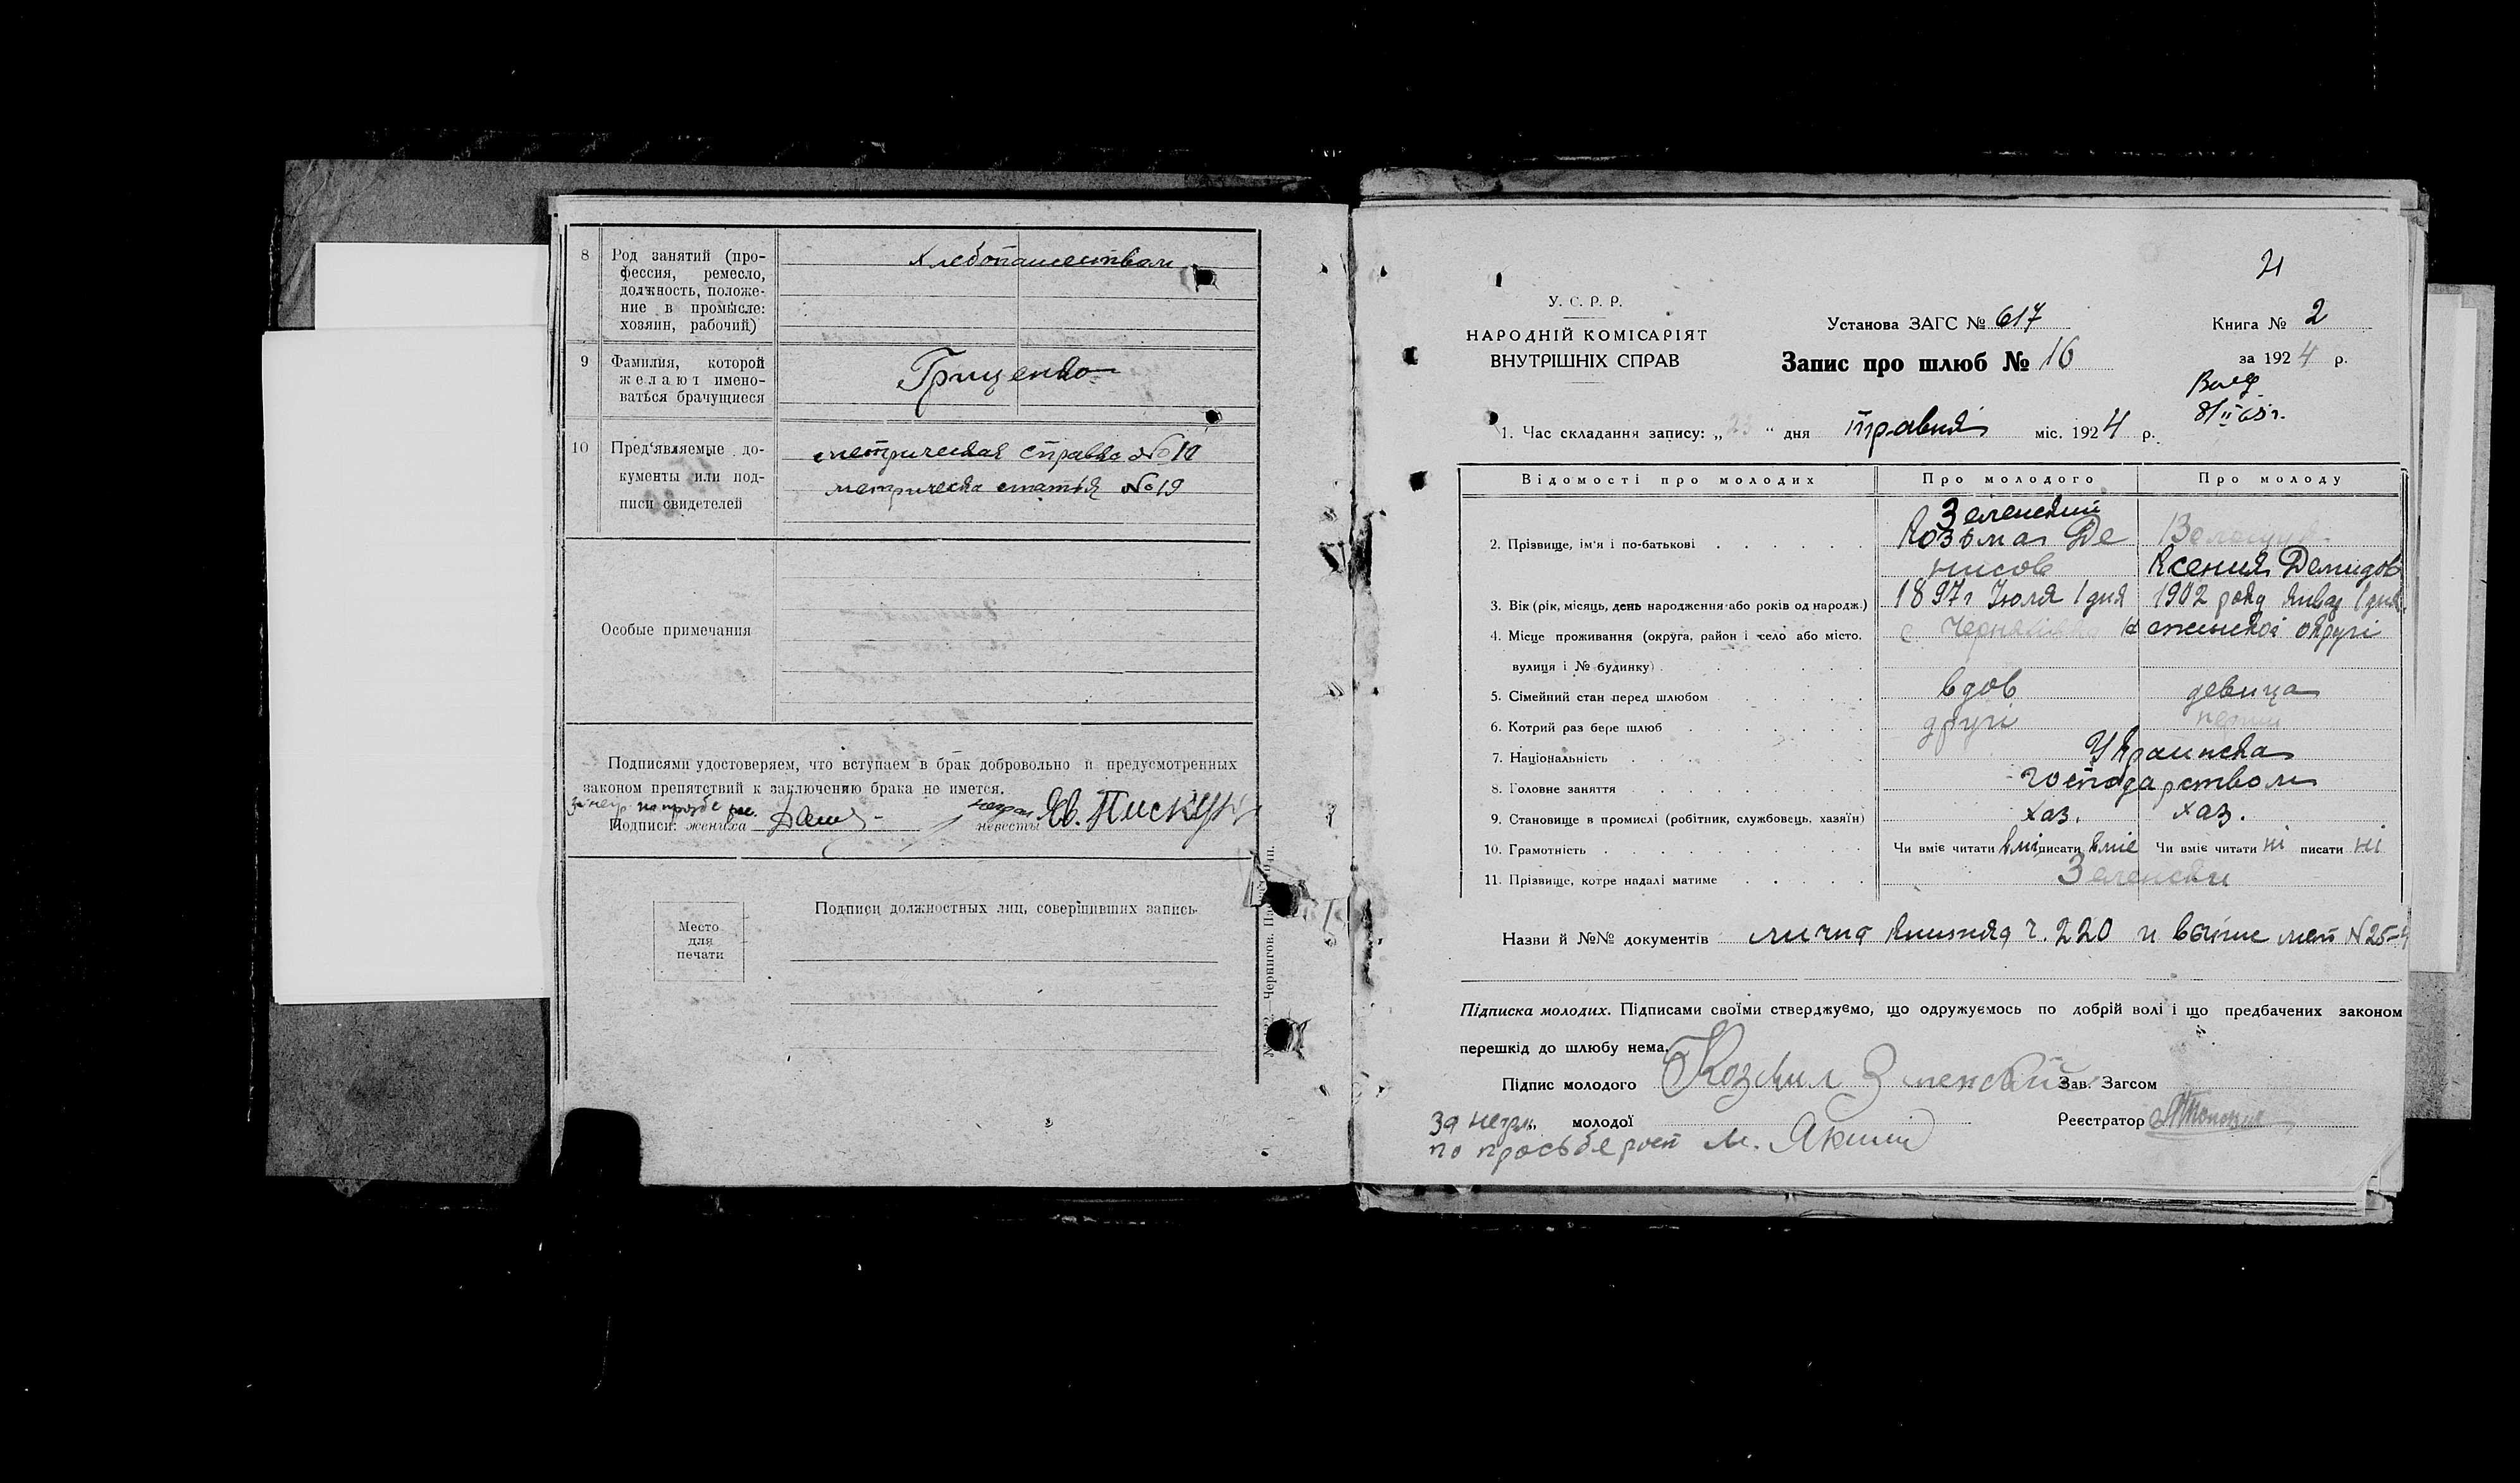 8 Род занятий (про-
фессия, ремесло,
должность, положе-
ние в промысле:
хозяин, рабочий)
хлебопашеством
9 Фамилия, которой
желают имено-
ваться брачущиеся
Грищенко
10 Пред'являемые до-
кументы или под-
писи свидетелей
метрическая справка № 10
метрическа статья № 19
Особые примечания
Подписями удостоверяем, что вступаем в брак добровольно и предусмотренных
законом препятствий к заключению брака не имется.
Подписи: жениха
невесты Яв. Пискун
Место
для
печати
Подписи должностных лиц, совершивших запись.
21
У. С. Р. Р.
НАРОДНІЙ КОМІСАРІЯТ
ВНУТРІШНІХ СПРАВ
Установа ЗАГС № 617
Запис про шлюб № 16
Книга № 2
за 1924 р.
8/II 65 г.
1. Час складання запису: „23“ дня травня міс. 1924 р.
Відомості про молодих Про молодого Про молоду
Зеленский
2. Прізвище, ім'я і по-батькові Козьма Де
нисов Ксения Демидов
3. Вік (рік, місяць, день народження або років од народж.) 1897 г Июля 1 дня 1902 році январ 1 дня
4. Місце проживання (округа, район і село або місто,
вулиця і № будинку) округі
5. Сімейний стан перед шлюбом вдов девица
6. Котрий раз бере шлюб другі
7. Національність Украинска
8. Головне заняття господарством
9. Становище в промислі (робітник, службовець, хазяїн) хаз. хаз.
10. Грамотність Чи вміє читати вміє писати вміє Чи вміє читати ні писати ні
11. Прізвище, котре надалі матиме Зеленски
Назви й №№ документів ч. 220 и № 25
Підписка молодих. Підписами своїми стверджуємо, що одружуємось по добрій волі і що предбачених законом
перешкід до шлюбу нема.
Підпис молодого Козмил Зеленский Зав. Загсом
за негр. „ молодої Реєстратор
по просьбе росп М. Якиш